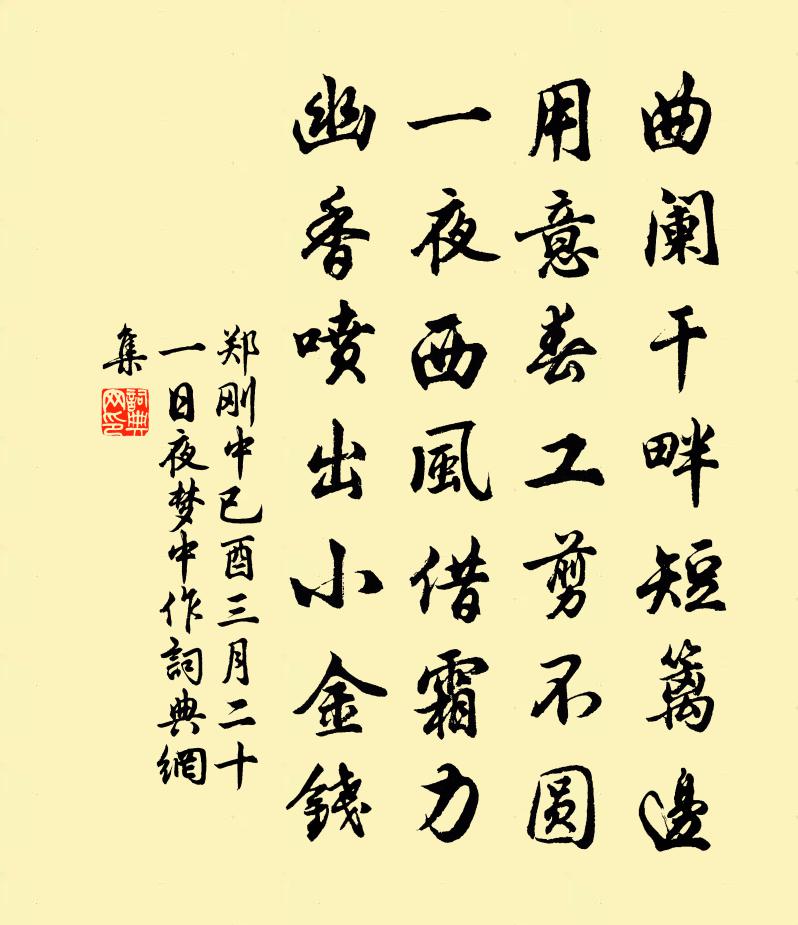 曲阑干畔短篱邊
用意春工剪不圆
一夜西風借霜力
幽香喷出小金錢
郑刚中己酉三月二十
一日夜梦中作詞典網
集
詞典
网印